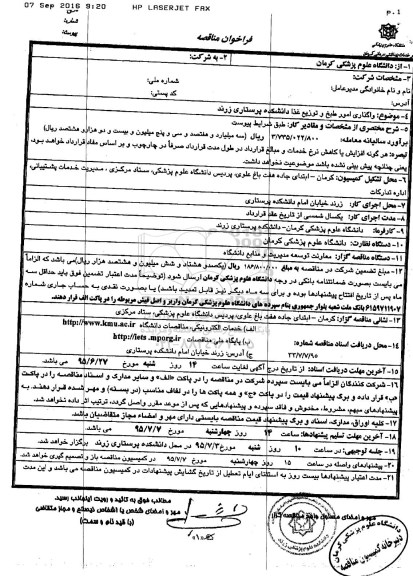 07 Sep 2016 9:20 HP LASERJET FAX p.1
فراخوان مناقصه
۱-از: دانشگاه علوم پزشکی کرمان
۲- به شرکت:
۳- مشخصات شرکت:
نام و نام خانوادگی مدیرعامل:
شماره ملی:
آدرس:
کد پستی:
۴-موضوع: واگذاری امور طبخ و توزیع غذا دانشکده پرستاری زرند
۵- شرح مختصری از مشخصات و مقادیر کار: طبق شرایط پیوست
برآورد سالیانه معامله: ۳/۷۳۵/۰۲۲/۸۰۰ ریال (سه میلیارد و هفتصد و سی و پنج میلیون و بیست و دو هزارو هشتصد ریال)
تبصره: هر گونه افزایش یا کاهش نرخ خدمات و مبالغ قرارداد در طول مدت قرارداد صرفاً در چهارچوب و بر اساس مفاد قرارداد خواهد بود.
یعنی چنانچه پیش بینی نشده باشد موضوعیت نخواهد داشت.
۶- محل تشکیل کمیسیون: کرمان – ابتدای جاده هفت باغ علوی، پردیس دانشگاه علوم پزشکی، ستاد مرکزی ، مدیریت خدمات پشتیبانی،
اداره تدارکات
۷- محل اجرای کار: زرند خیابان امام دانشکده پرستاری
۸- مدت اجرای کار: یکسال شمسی از تاریخ عقد قرارداد
۹- کارفرما: دانشگاه علوم پزشکی کرمان-دانشکده پرستاری زرند
۱۰- دستگاه نظارت: دانشگاه علوم پزشکی کرمان
۱۱- دستگاه مناقصه گزار: معاونت توسعه مدیریت و منابع دانشگاه
۱۲- مبلغ تضمین شرکت در مناقصه به مبلغ ۱۸۶/۸۰۰/۰۰۰ ریال (یکصدو هشتاد و شش میلیون و هشتصد هزار ریال)می باشد که الزاماً
می بایست بصورت ضمانتنامه بانکی در وجه دانشگاه علوم پزشکی کرمان ارسال شود (توضیحاً مدت اعتبار تضمین فوق باید حداقل سه
ماه پس از تاریخ افتتاح پیشنهادها بوده و برای سه ماه دیگر نیز قابل تمدید باشد) یا بصورت نقدی به حساب جاری شماره
بانک ملت شعبه بلوار جمهوری بنام سپرده های دانشگاه علوم پزشکی کرمان واریز و اصل فیش مربوطه را در پاکت الف قرار دهند.
۱۳- نشانی مناقصه گزار: کرمان – ابتدای جاده هفت باغ علوی، پردیس دانشگاه علوم پزشکی، ستاد مرکزی
۱۴- محل دریافت اسناد مناقصه شماره:
۲۲/۷/۷/۹۵
الف) خدمات الکترونیکی، مناقصات دانشگاه http://www.kmu.ac.ir
ب) پایگاه ملی مناقصات http://iets.mporg.ir
ج) آدرس: زرند خیابان امام دانشکده پرستاری
۱۵- آخرین مهلت دریافت اسناد: از تاریخ درج آگهی لغایت ساعت ۱۴ روز شنبه مورخ ۹۵/۶/۲۷ می باشد.
۱۶- شرکت کنندگان الزاماً می بایست سپرده شرکت در مناقصه را در پاکت «الف» و سایر مدارک و اسناد مناقصه را در پاکت
«ب» قرار داده و برگ پیشنهاد قیمت را در پاکت «ج» و همه پاکت ها را در لفاف مناسب (در بسته) و مهر شده قرار دهند. به
پیشنهادهای مبهم، مشروط، مخدوش و فاقد سپرده و پیشنهادهایی که پس از موعد مقرر واصل گردد، ترتیب اثر داده نخواهد شد.
۱۷- کلیه اوراق، مدارک، اسناد و برگ پیشنهاد قیمت مناقصه بایستی دارای مهر و امضاء مجاز متقاضیان باشد.
۱۸- آخرین مهلت تسلیم پیشنهادها: ساعت ۱۴ روز چهارشنبه مورخ ۹۵/۷/۷
۱۹- جلسه توجیهی: در ساعت ۱۰ روز شنبه مورخ ۹۵/۷/۳ در محل دانشکده پرستاری زرند برگزار خواهد شد.
۲۰- پیشنهادهای واصله در ساعت ۱۵ روز چهارشنبه مورخ ۹۵/۷/۷ در کمیسیون مناقصه باز و تصمیم گیری خواهد شد.
۲۱- مدت اعتبار پیشنهادها بیست روز به استثنای ایام تعطیل از تاریخ گشایش پیشنهادات در کمیسیون مناقصه می باشد و این مدت
مطالب فوق به تائید و رویت اینجانب رسید.
مهر و امضای شخص یا اشخاص ذیصلاح و مجاز متقاضی
(با قید نام و سمت)
دانشگاه علوم پزشکی کرمان
دبیرخانه کمیسیون مناقصه